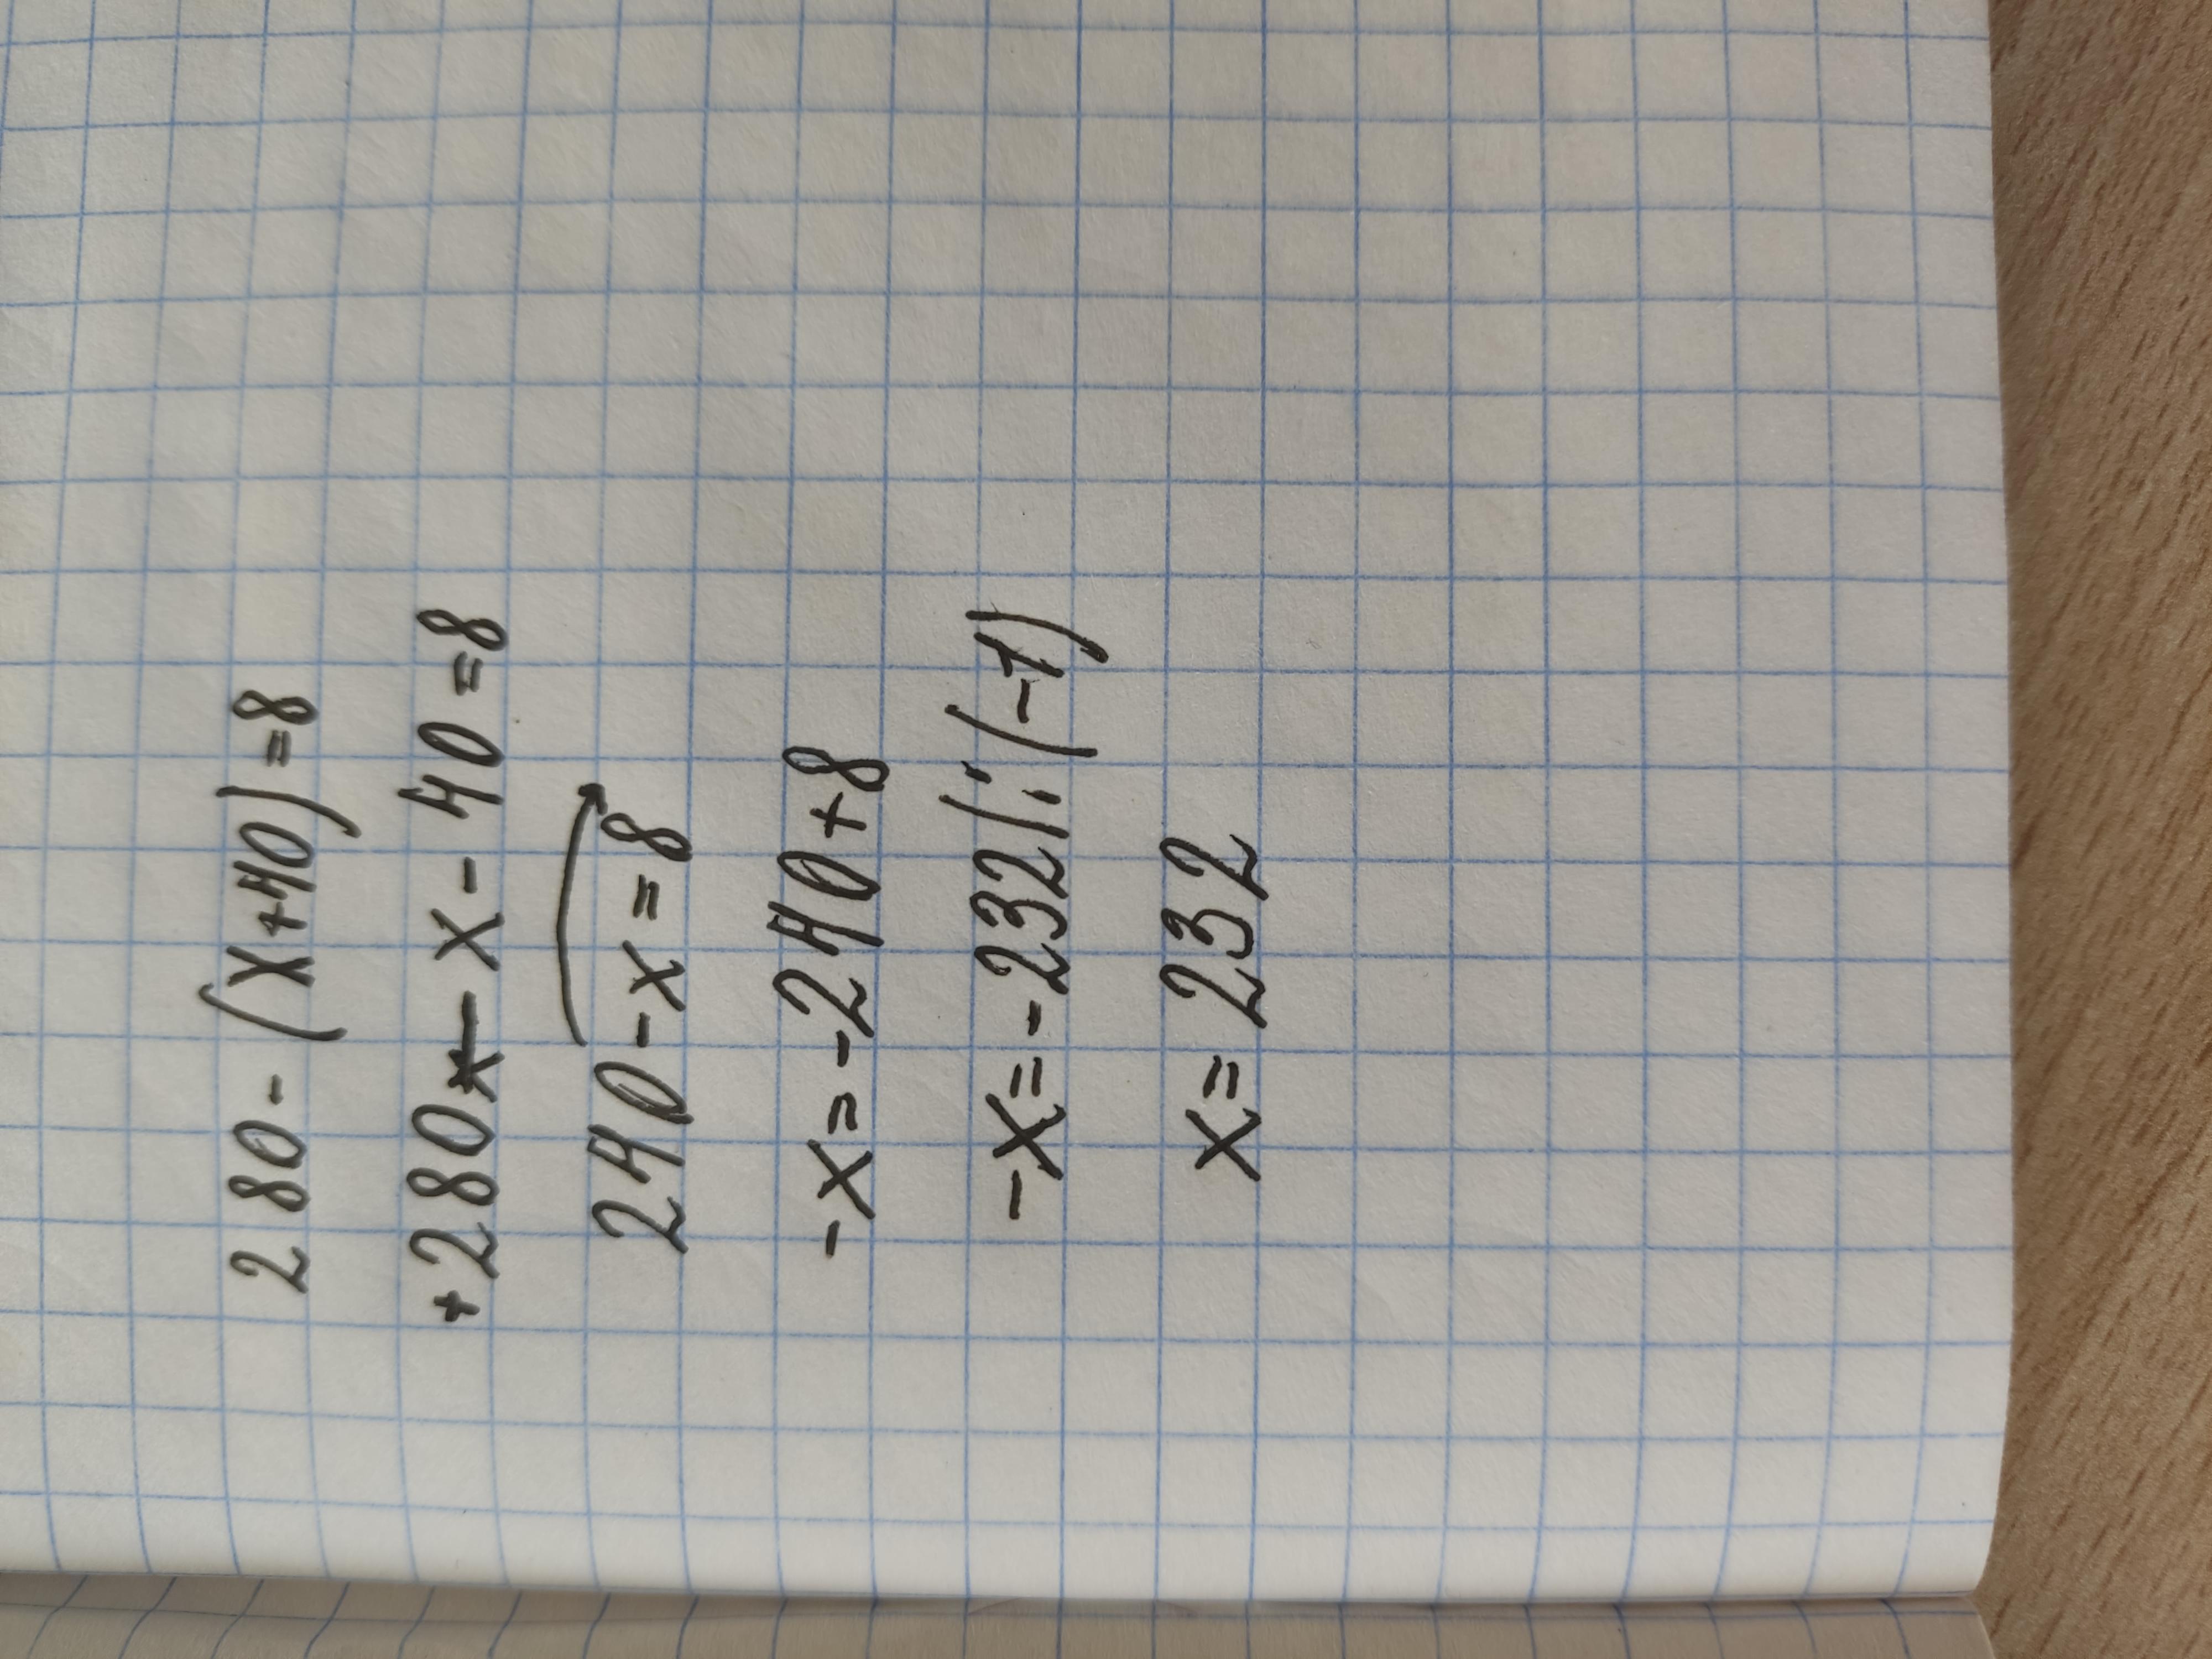 280-(x+40)=8
+280-x-40=8
240-x=8
-x=-240+8
-x=-232|:(-1)
x=232